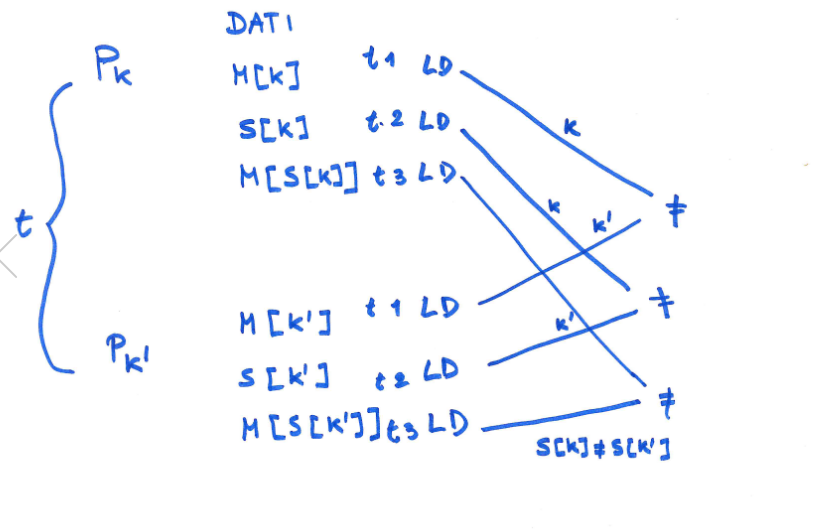 DATI
Pk M[k] t1 LD
k
S[k] t.2 LD
M[S[k]] t3 LD
k
k'
≠
t
≠
M[k'] t1 LD
k'
Pk'
S[k'] t2 LD
≠
M[S[k']] t3 LD
S[k]≠S[k']